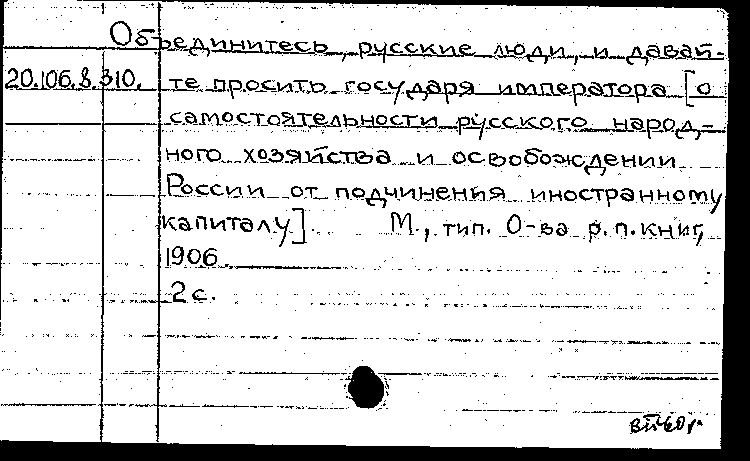 Объединитесь, русские люди, и давай-
20.106.8.310. те просить государя императора [о
самостоятельности русского народ-
ного хозяйства и освобождении
России от подчинения иностранному
капиталу]. М., тип. О-ва р.п.книг,
1906.
2 с.